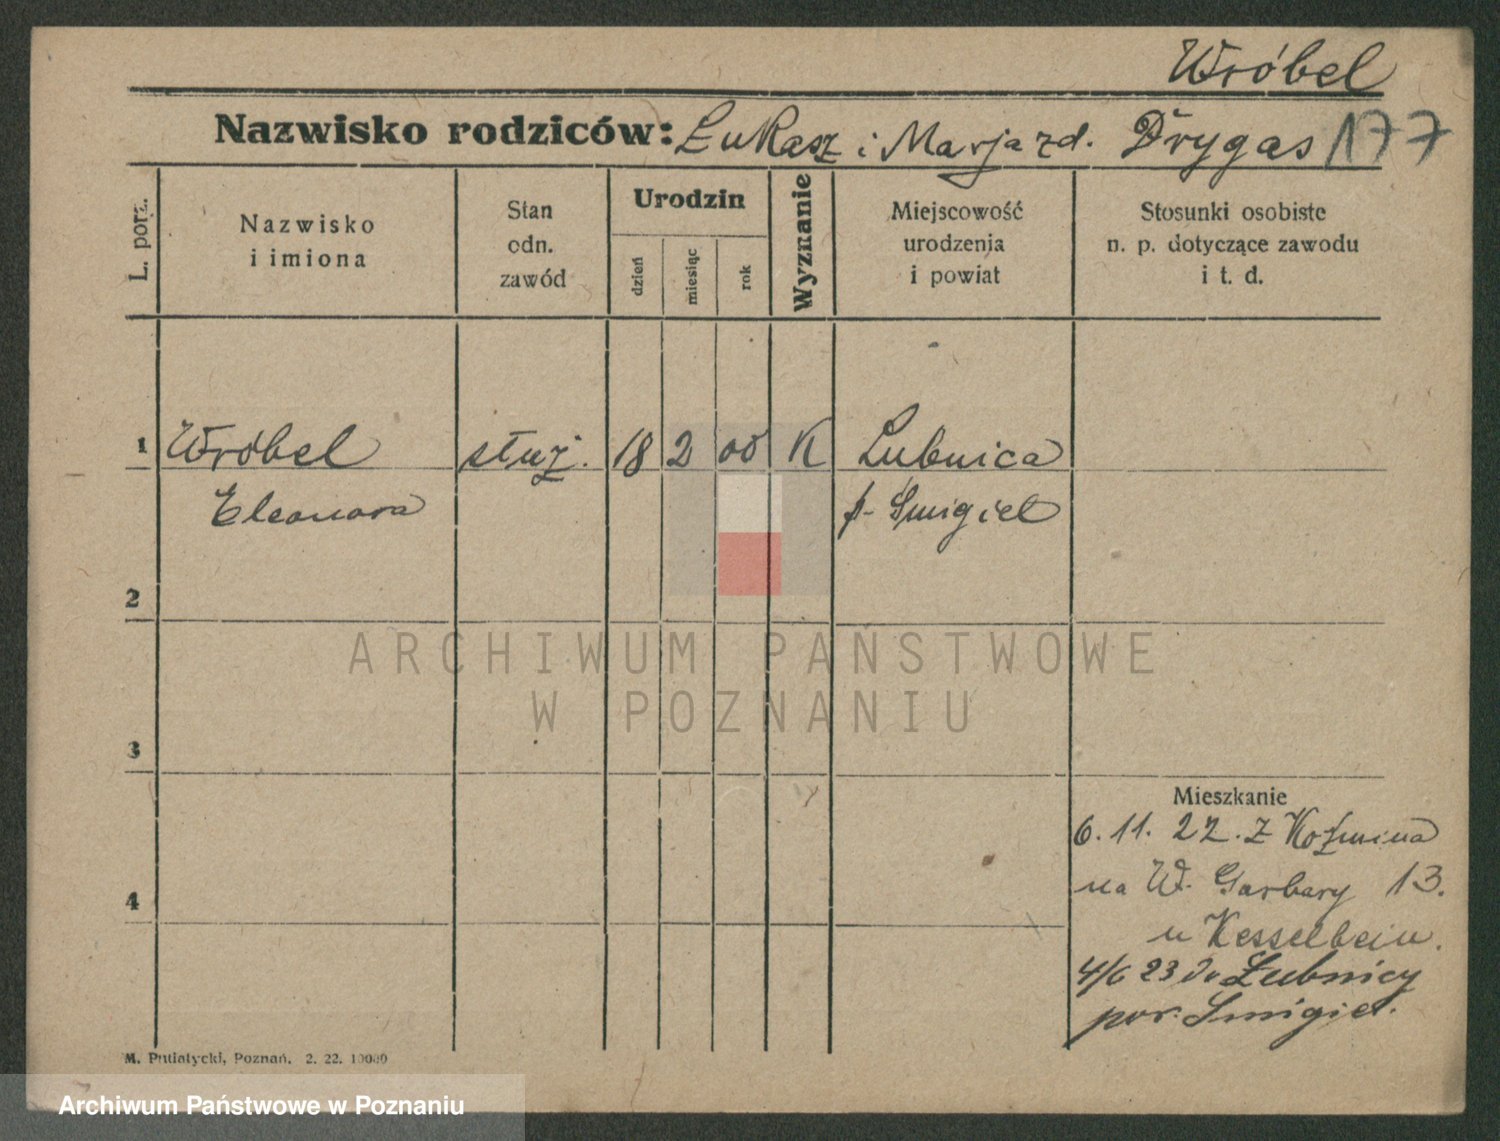 Wróbel
Nazwisko rodziców: Łukasz i Marja zd. Drygas 177
L. porz.
Nazwisko
i imiona
Stan
odn.
zawód
Urodzin
dzień
miesiąc
rok
Wyznanie
Miejscowość
urodzenia
i powiat
Stosunki osobiste
n. p. dotyczące zawodu
i t. d.
1 Wróbel służ. 18 2 00 K Łubnica
Eleonora p. Śmigiel
2
ARCHIWUM PAŃSTWOWE
W POZNANIU
3
Mieszkanie
6. 11. 22. z Koźmina
na W. Garbary 13.
u Kesselbein.
4
4/6 23 do Łubnicy
pow. Śmigiel.
M. Putiatycki, Poznań. 2. 22. 10000
Archiwum Państwowe w Poznaniu